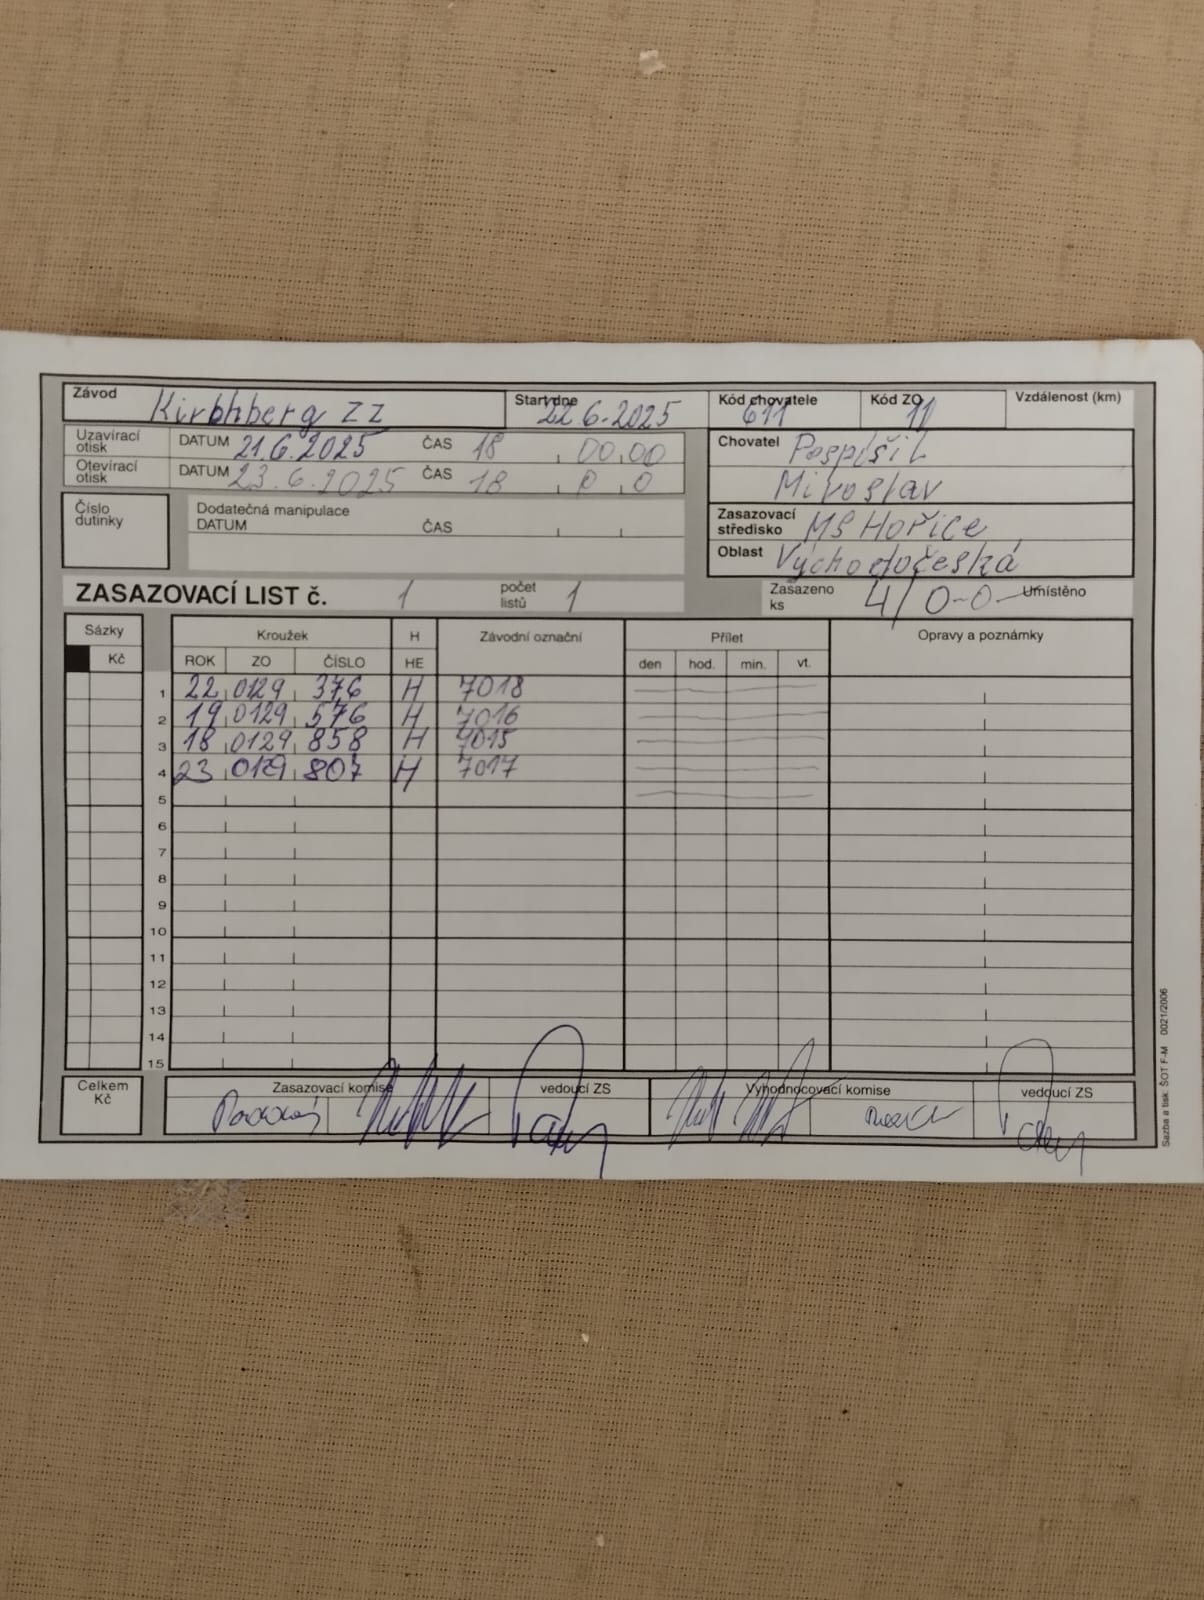 Závod Kirbhberg ZZ Start dne 22.6.2025 Kód chovatele 611 Kód ZO 11 Vzdálenost (km)
Uzavírací otisk DATUM 21.6.2025 ČAS 18 00,00
Otevírací otisk DATUM 23.6.2025 ČAS 18 0 0
Chovatel Pospíšil
Miroslav
Číslo dutinky
Dodatečná manipulace
DATUM ČAS
Zasazovací středisko MS Hořice
Oblast Východočeská
ZASAZOVACÍ LIST č. 1 počet listů 1 Zasazeno ks 4/0-0- Umístěno
Sázky Kroužek H Závodní označní Přílet Opravy a poznámky
Kč ROK ZO ČÍSLO HE den hod. min. vt.
1 22 0129 376 H 7018
2 19 0129 576 H 7016
3 18 0129 858 H 7015
4 23 0129 807 H 7017
5
6
7
8
9
10
11
12
13
14
15
Celkem Kč Zasazovací komise vedoucí ZS Vyhodnocovací komise vedoucí ZS
Sazba a tisk: ŠOT F-M 0021/2006